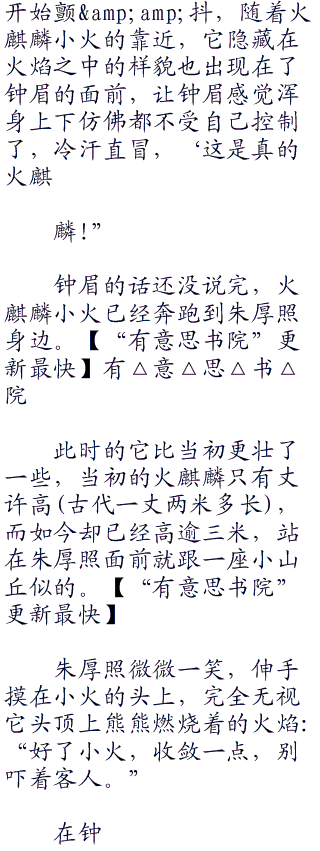 开始颤&amp;amp;抖，随着火
麒麟小火的靠近，它隐藏在
火焰之中的样貌也出现在了
钟眉的面前，让钟眉感觉浑
身上下仿佛都不受自己控制
了，冷汗直冒，‘这是真的
火麒
麟！”
钟眉的话还没说完，火
麒麟小火已经奔跑到朱厚照
身边。【“有意思书院”更
新最快】有△意△思△书△
院
此时的它比当初更壮了
一些，当初的火麒麟只有丈
许高(古代一丈两米多长)，
而如今却已经高逾三米，站
在朱厚照面前就跟一座小山
丘似的。【“有意思书院”
更新最快】
朱厚照微微一笑，伸手
摸在小火的头上，完全无视
它头顶上熊熊燃烧着的火焰:
“好了小火，收敛一点，别
吓着客人。”
在钟